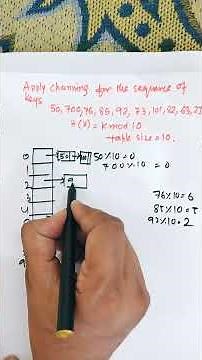 Apply chaining for the sequence of
keys
50, 700, 76, 85, 92, 73, 101, 82, 63, 2
h(k) = k mod 10
table size = 10.
0 50 50%10=0
1 700%10 = 0
2 9
3
4
76%10=6
85%10=5
92%10=2